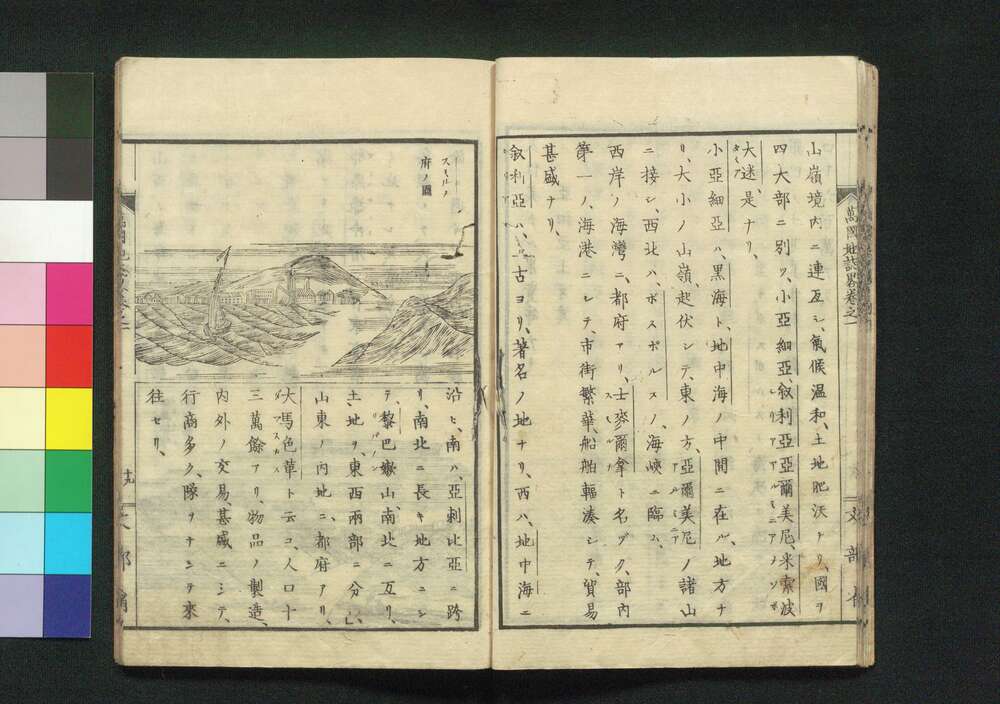 山嶺境内ニ連亙シ、氣候温和、土地肥沃ナリ、國ヲ
四大部ニ別ツ、小亞細亞、叙利亞、亞爾美尼、米索波
大迷是ナリ、
小亞細亞ハ、黒海ト、地中海ノ中間ニ在ル、地方ナ
リ、大小ノ山嶺、起伏シテ、東ノ方、亞爾美尼ノ諸山
ニ接シ、西北ハ、ボスポルスノ、海峽ニ臨ム、
西岸ノ海灣ニ、都府アリ、士麥爾拿ト名ヅク、部内
第一ノ、海港ニシテ、市街繁華、船舶輻湊シテ、貿易
甚盛ナリ、
叙利亞ハ、上古ヨリ、著名ノ地ナリ、西ハ、地中海ニ
萬國地誌畧巻之一
スミルノ
府ノ圖
沿ヒ、南ハ、亞剌比亞ニ跨
リ、南北ニ長キ地方ニシ
テ、黎巴嫩山、南北ニ亙リ、
土地ヲ、東西兩部ニ分ツ、
山東ノ内地ニ、都府アリ、
大馬色革ト云フ、人口十
三萬餘アリ、物品ノ製造、
内外ノ交易、甚盛ニシテ、
行商多ク、隊ヲナシテ來
往セリ、
十九